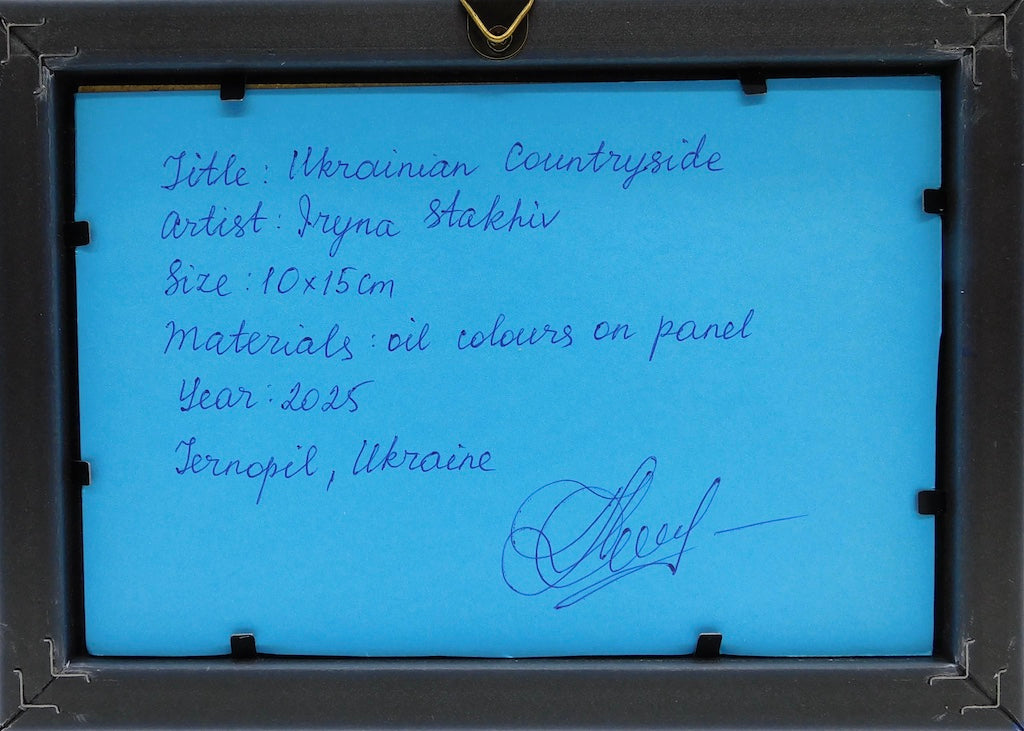 Title: Ukrainian Countryside
Artist: Iryna Stakhiv
Size: 10x15cm
Materials: oil colours on panel
Year: 2025
Ternopil, Ukraine